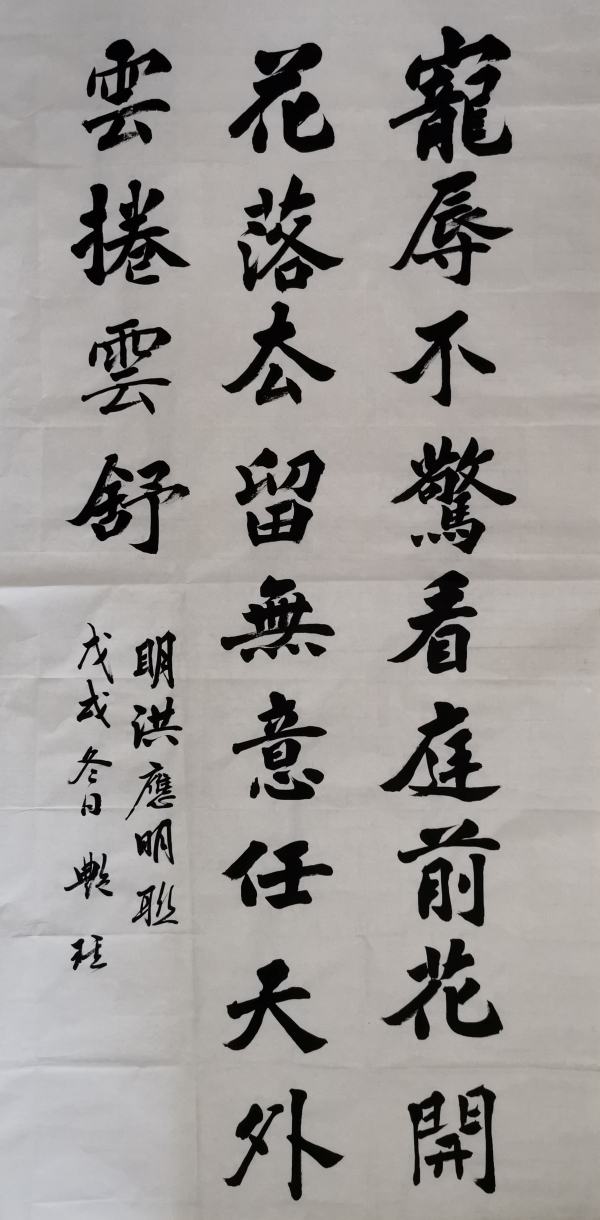 寵辱不驚看庭前花開
花落去留無意任天外
雲捲雲舒
明洪應明聯
戊戌冬日